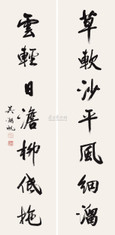 草軟沙平風細溜
雲輕日澹柳低拖
吴湖帆